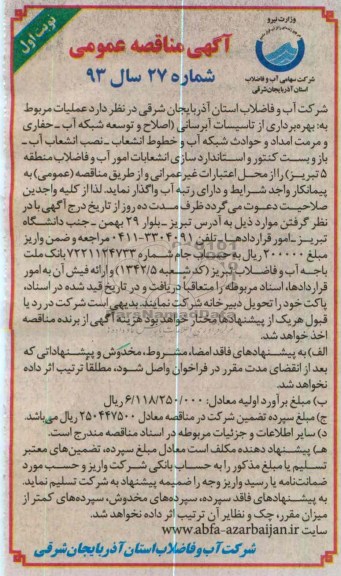 نوبت اول
وزارت نیرو
شرکت سهامی آب و فاضلاب
استان آذربایجان شرقی
آگهی مناقصه عمومی
شماره ۲۷ سال ۹۳
شرکت آب و فاضلاب استان آذربایجان شرقی در نظر دارد عملیات مربوط
به: بهره‌برداری از تاسیسات آبرسانی (اصلاح و توسعه شبکه آب - حفاری
و مرمت امداد و حوادث شبکه آب و خطوط انشعاب - نصب انشعاب آب -
باز و بست کنتور و استانداردسازی انشعابات امور آب و فاضلاب منطقه
۵ تبریز) را از محل اعتبارات غیرعمرانی و از طریق مناقصه (عمومی) به
پیمانکار واجد شرایط و دارای رتبه آب واگذار نماید. لذا از کلیه واجدین
صلاحیت دعوت می‌گردد ظرف مدت ده روز از تاریخ درج آگهی با در
نظر گرفتن موارد ذیل به آدرس تبریز - بلوار ۲۹ بهمن - جنب دانشگاه
تبریز - امور قراردادها - تلفن ۳۳۰۴۰۹۱-۰۴۱۱ مراجعه و ضمن واریز
مبلغ ۲۰۰۰۰۰ ریال به حساب جام شماره ۷۲۲۱۱۲۴۷۳۳ بانک ملت
باجه آب و فاضلاب تبریز (کد شعبه ۱۳۴۲/۵) و ارائه فیش آن به امور
قراردادها، اسناد مربوطه را متعاقباً دریافت و در تاریخ قید شده در اسناد،
پاکت خود را تحویل دبیرخانه شرکت نمایند. بدیهی است شرکت در رد یا
قبول هر یک از پیشنهادها مختار خواهد بود. هزینه آگهی از برنده مناقصه
اخذ خواهد شد.
الف) به پیشنهادهای فاقد امضا، مشروط، مخدوش و پیشنهاداتی که
بعد از انقضای مدت مقرر در فراخوان واصل شود، مطلقا ترتیب اثر داده
نخواهد شد.
ب) مبلغ برآورد اولیه معادل: ۶/۱۱۸/۲۵۰/۰۰۰ ریال
ج) مبلغ سپرده تضمین شرکت در مناقصه معادل ۲۵۰۴۴۷۵۰۰ ریال می‌باشد.
د) سایر اطلاعات و جزئیات مربوطه در اسناد مناقصه مندرج است.
هـ) پیشنهاد دهنده مکلف است معادل مبلغ سپرده، تضمین‌های معتبر
تسلیم یا مبلغ مذکور را به حساب بانکی شرکت واریز و حسب مورد
ضمانت‌نامه یا رسید واریز وجه را ضمیمه پیشنهاد به شرکت تسلیم نماید.
به پیشنهادهای فاقد سپرده، سپرده‌های مخدوش، سپرده‌های کمتر از
میزان مقرر، چک و نظایر آن ترتیب اثر داده نخواهد شد.
سایت www.abfa-azarbaijan.ir
شرکت آب و فاضلاب استان آذربایجان شرقی